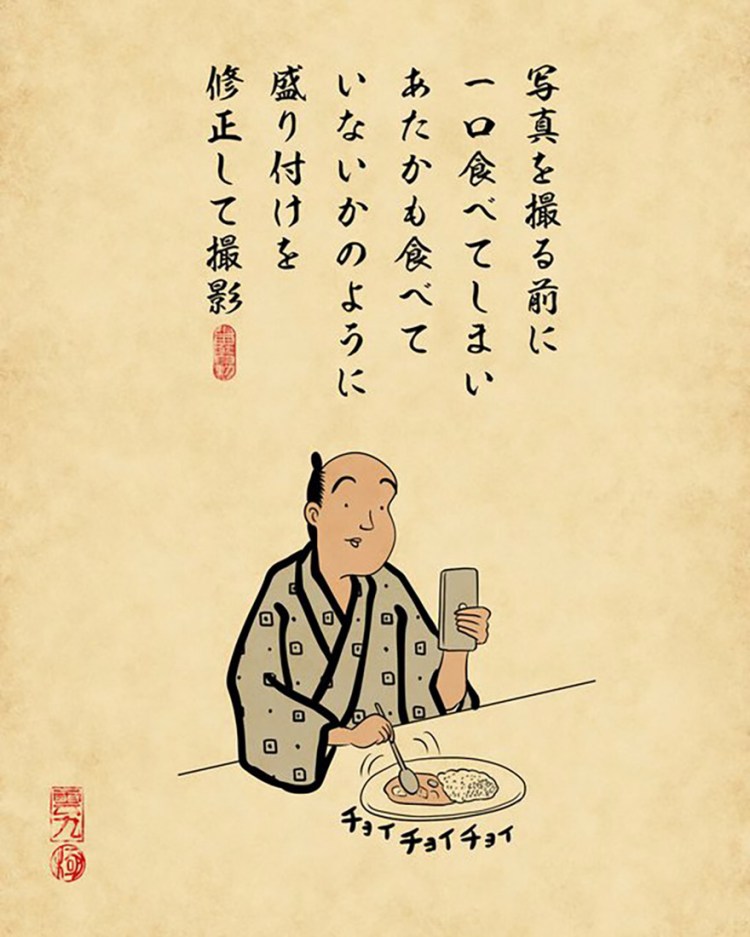 写真を撮る前に
一口食べてしまい
あたかも食べて
いないかのように
盛り付けを
修正して撮影
チョイ チョイ チョイ